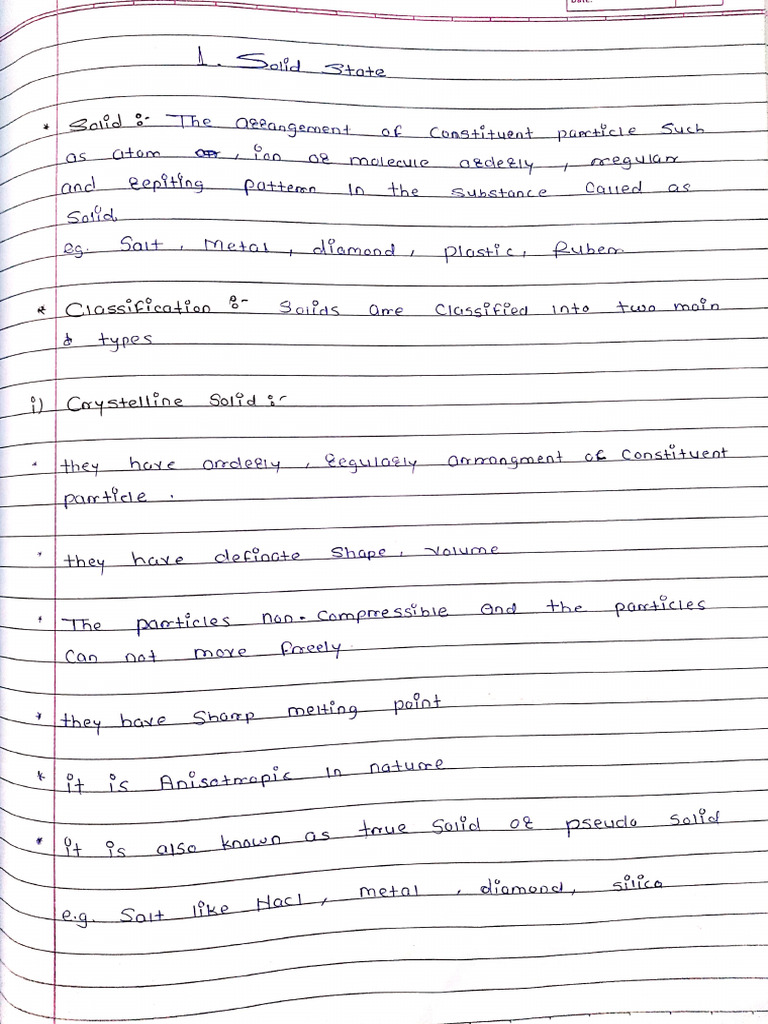 Date:
1. Solid State
* Solid :- The arrangement of Constituent particle Such
as atom or, ion or molecule orderly, rregular
and repiting pattern In the substance Called as
Solid
eg. Salt, Metal, diamond, plastic, Ruber
* Classification :- Solids are Classified into two main
types
i) Crystelline Solid :-
· they have orderly, regularly arrangment of Constituent
particle.
· they have definate Shape, volume
· The particles non-compressible and the particles
can not move freely.
* they have Sharp melting point
* it is Anisotropic in nature
* it is also known as true Solid or pseudo solid
e.g. Salt like Nacl, metal, diamond, silica